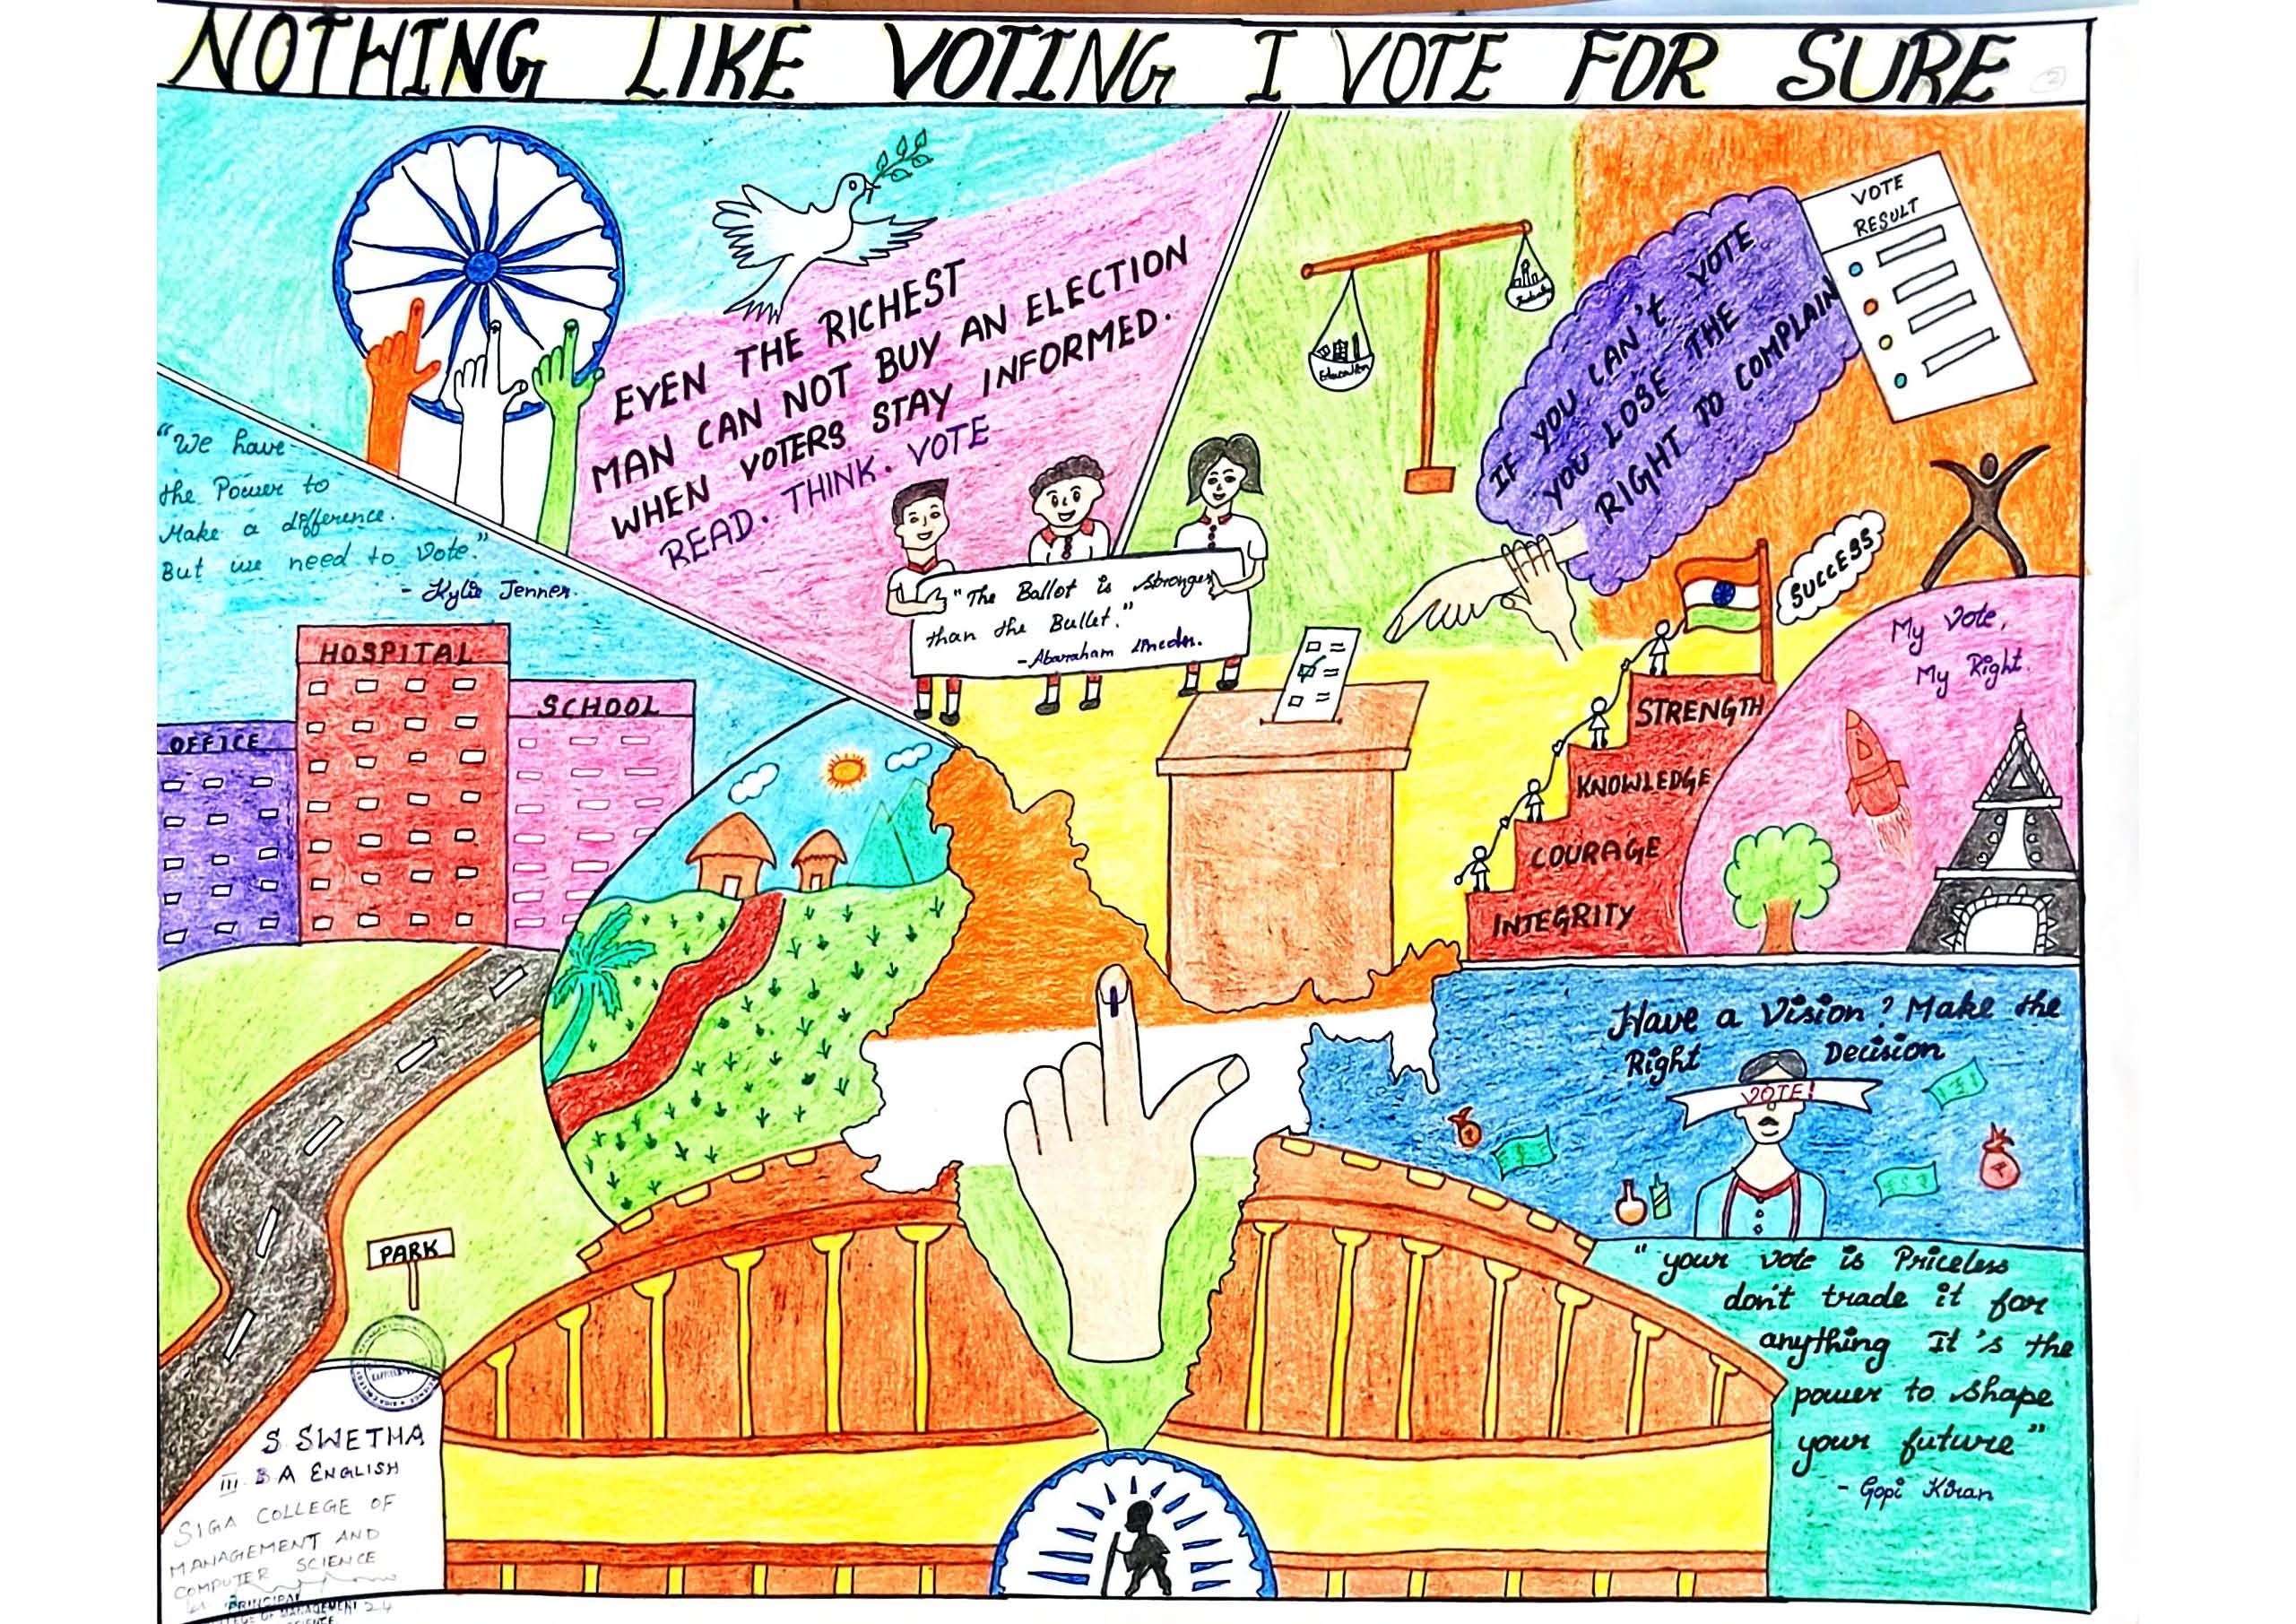 NOTHING LIKE VOTING I VOTE FOR SURE
EVEN THE RICHEST
MAN CAN NOT BUY AN ELECTION
WHEN VOTERS STAY INFORMED.
READ. THINK. VOTE
"We have
the Power to
Make a difference.
But we need to Vote."
- Kylie Jenner.
"The Ballot is stronger
than the Bullet."
- Abaraham Lincoln.
Education
IF YOU CAN't VOTE
YOU LOSE THE
RIGHT TO COMPLAIN
VOTE
RESULT
SUCCESS
STRENGTH
KNOWLEDGE
COURAGE
INTEGRITY
My Vote,
My Right.
OFFICE
HOSPITAL
SCHOOL
PARK
Have a Vision? Make the
Right Decision
VOTE!
"your vote is Priceless
don't trade it for
anything It's the
power to shape
your future"
- Gopi Kiran
S. SWETHA
III B A ENGLISH
SIGA COLLEGE OF
MANAGEMENT AND
COMPUTER SCIENCE
PRINCIPAL